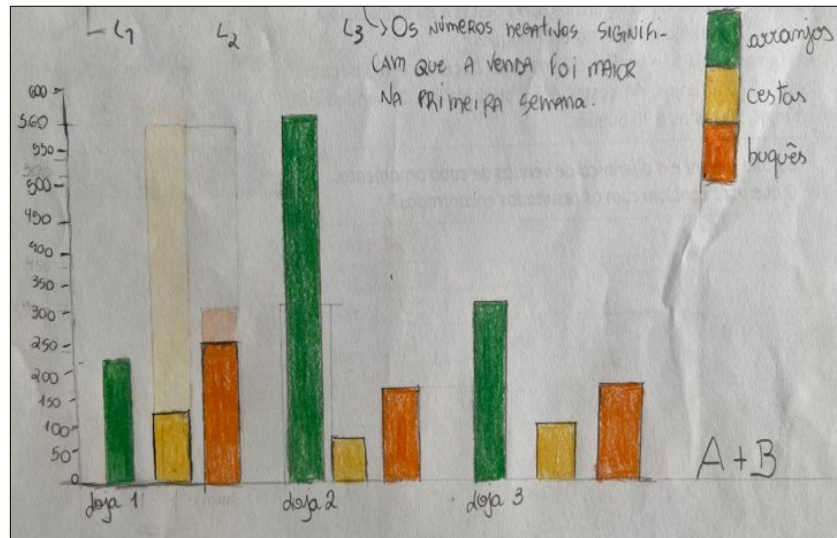 L1 L2 L3 ↳ Os números negativos signifi-
cam que a venda foi maior
na primeira semana.
arranjos
cestas
buquês
600
560
550
500
450
400
350
300
250
200
150
100
50
0
loja 1 loja 2 loja 3
A+B